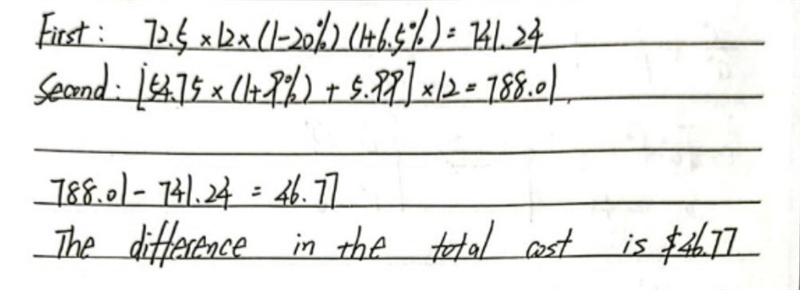 First: 72.5 × 12 × (1-20%) (1+6.5%) = 741.24
Second: [54.75 × (1+9%) + 5.99] × 12 = 788.01
788.01 - 741.24 = 46.77
The difference in the total cost is $46.77